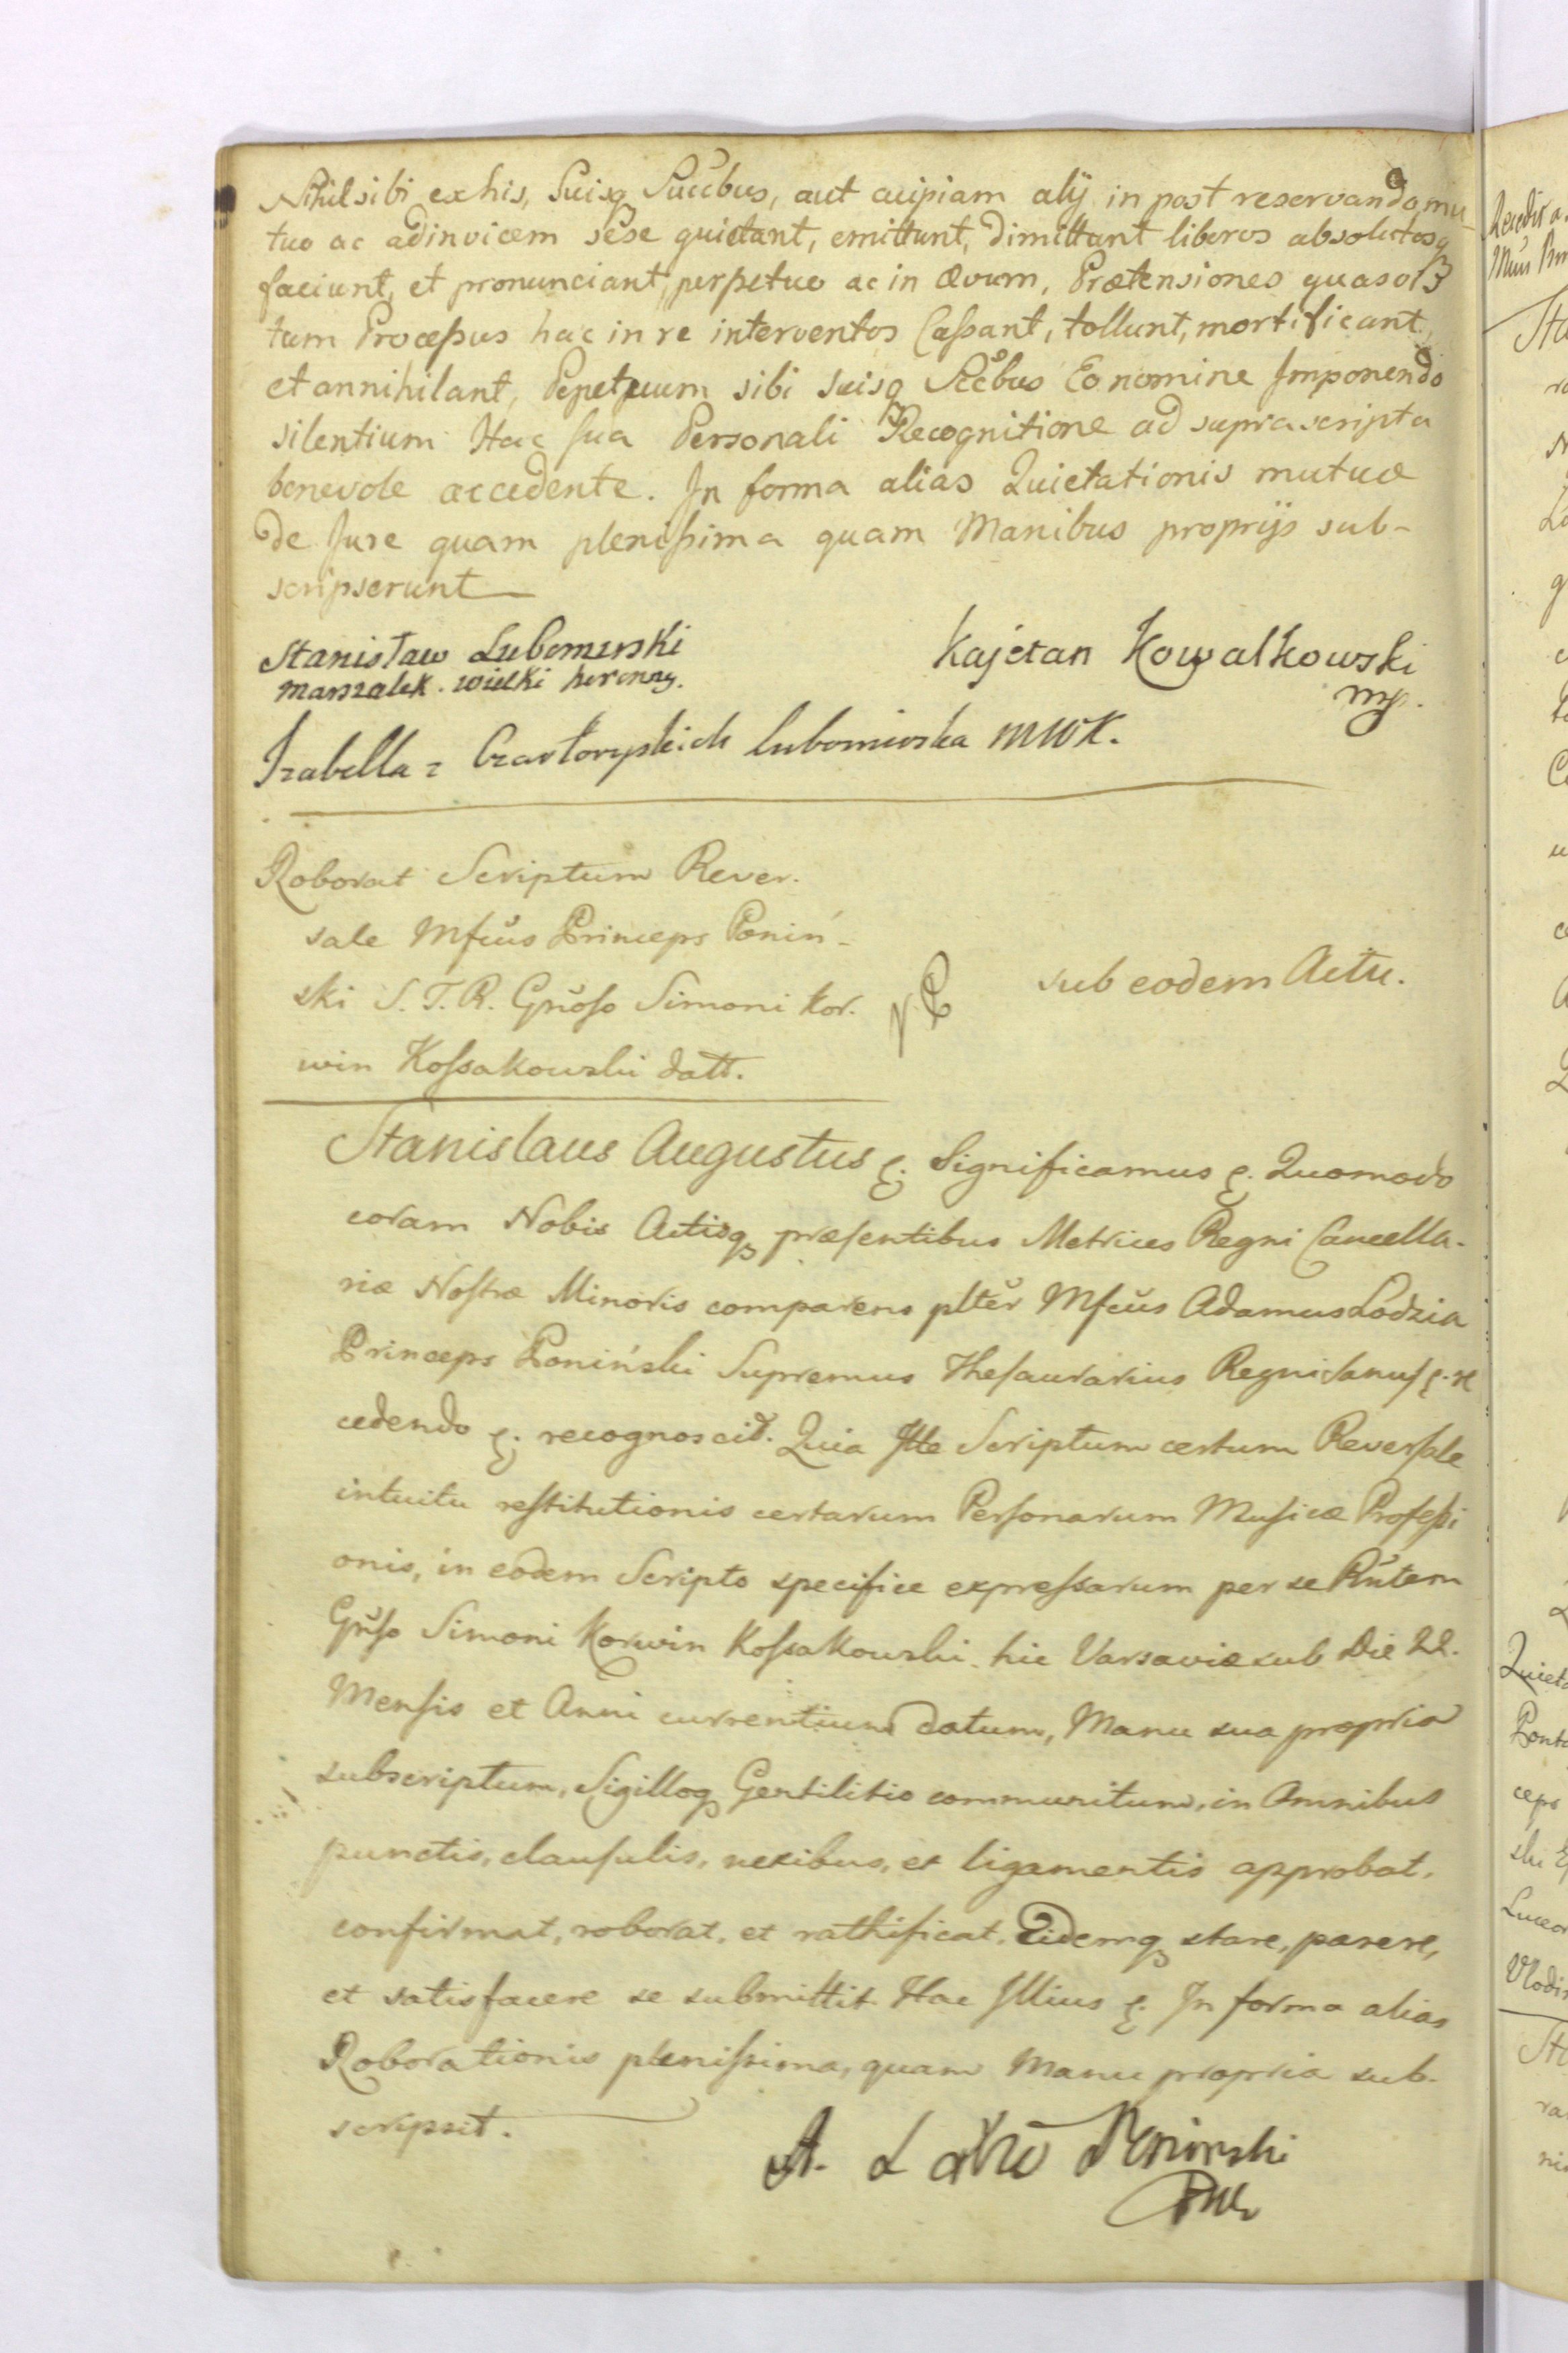 Nihil sibi ex his, Suisq Succbus, aut cuipiam alij in post reservando, mu-
tuo ac adinvicem sese quietant, emittunt, dimittunt liberos absolutosq
faciunt, et pronunciant, perpetuo ac in ævum, Prætensiones quasvis
tum Processus hac in re interventos Cassant, tollunt, mortificant,
et annihilant, Pepetuum sibi suisq Sccbus Eo nomine Imponendo
silentium Hac sua Personali Recognitione ad suprascripta
benevole accedente. In forma alias Quietationis mutuæ
de Jure quam plenissima quam Manibus proprijs sub-
scripserunt
Stanisław Lubomirski
marszałek wielki koronny.
Kajetan Kowalkowski
mp.
Izabella z Czartoryskich Lubomirska MWK.
Roborat Scriptum Rever-
sale Mfcus Princeps Poniń-
ski S. T. R. Gnoso Simoni Kor-
win Kossakowski datt.
sub eodem Actu.
Stanislaus Augustus &. Significamus &. Quomodo
coram Nobis Actisq præsentibus Metrices Regni Cancella-
riæ Nostræ Minoris comparens plter Mfcus Adamus Lodzia
Princeps Poniński Supremus Thesaurarius Regni Sanus &. re
cedendo &. recognoscit. Quia Ille Scriptum certum Reversale
intuitu restitutionis certarum Personarum Musicæ Professi
onis, in eodem Scripto specifice expressarum per se Rntem
Gnso Simoni Korwin Kossakowski hic Varsaviæ sub Die 22.
Mensis et Anni currentium datum, Manu sua propria
subscriptum, Sigilloq Gentilitio communitum, in Omnibus
punctis, clausulis, nexibus, et ligamentis approbat,
confirmat, roborat, et rathificat. Eidemq stare, parere,
et satisfacere se submittit. Hac Illius &. In forma alias
Roborationis plenissima, quam Manu propria sub-
scripsit.
A. Poninski